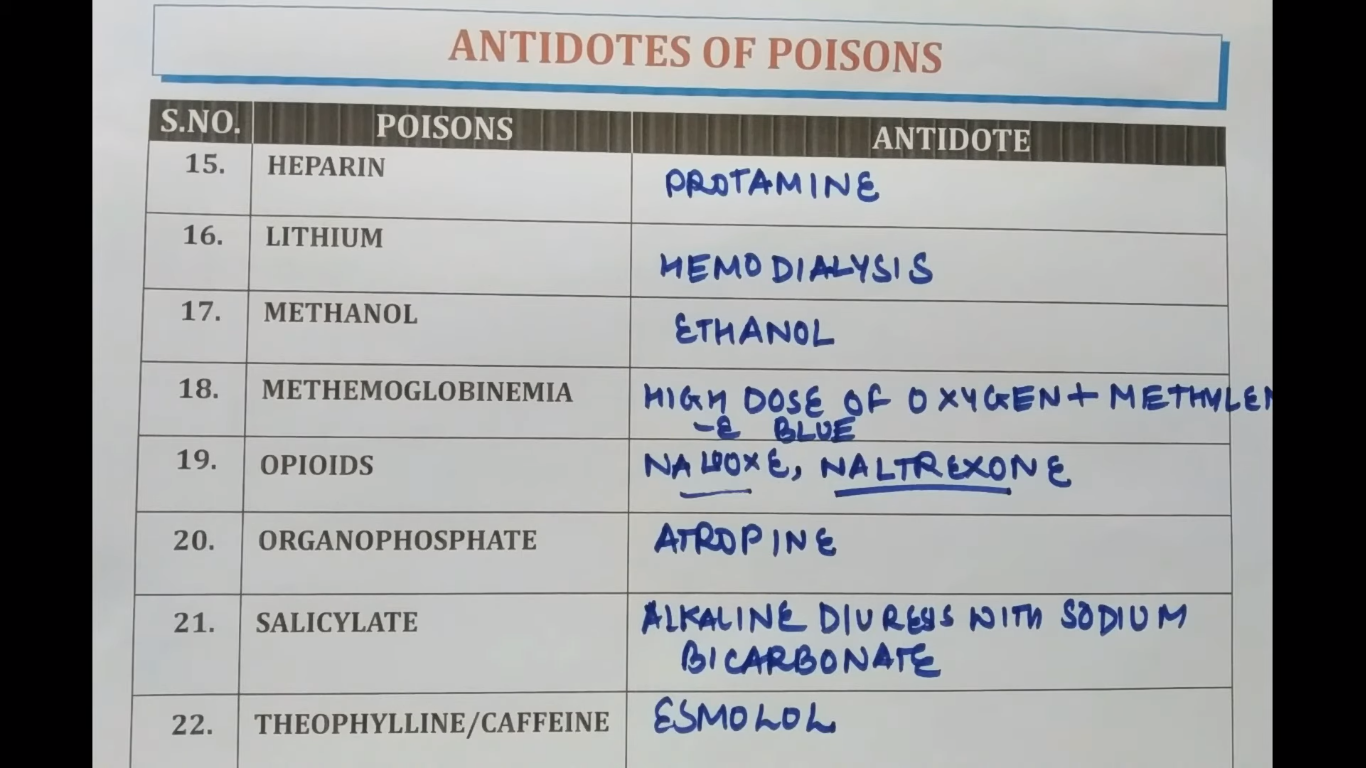 ANTIDOTES OF POISONS
S.NO. POISONS ANTIDOTE
15. HEPARIN PROTAMINE
16. LITHIUM HEMODIALYSIS
17. METHANOL ETHANOL
18. METHEMOGLOBINEMIA HIGH DOSE OF OXYGEN + METHYLEN
-E BLUE
19. OPIOIDS NALOXE, NALTREXONE
20. ORGANOPHOSPHATE ATROPINE
21. SALICYLATE ALKALINE DIURESIS WITH SODIUM
BICARBONATE
22. THEOPHYLLINE/CAFFEINE ESMOLOL